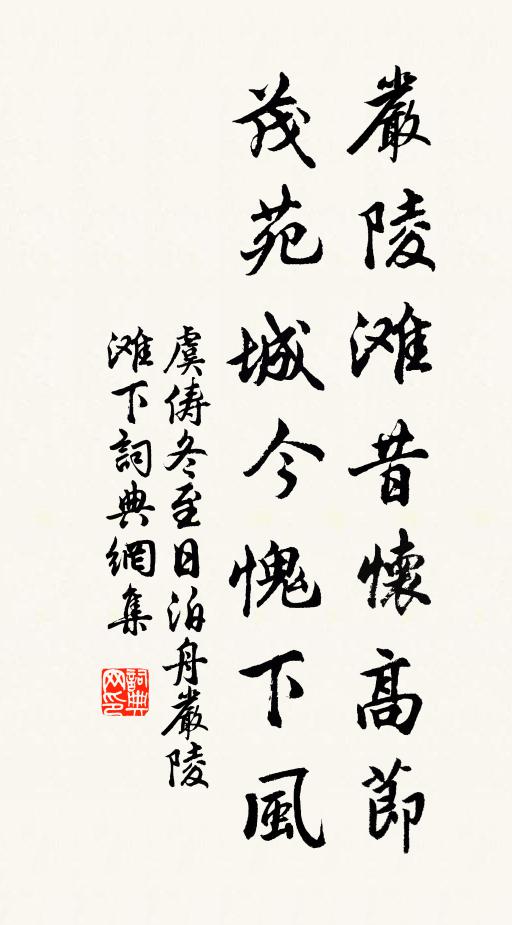 嚴陵滩昔懷高節
茂苑城今愧下風
虞俦冬至日泊舟嚴陵
滩下詞典網集
詞典
网印